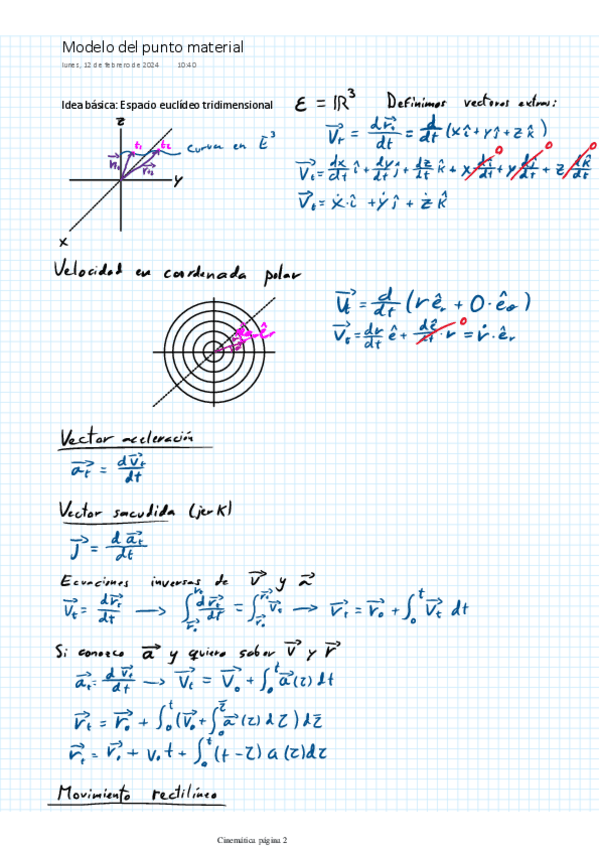 Modelo del punto material
lunes, 12 de febrero de 2024 10:40
Idea básica: Espacio euclídeo tridimensional
ℰ = ℝ³ Definimos vectores extras:
z
t₁ t₂
curva en E³
y
x
v⃗ₜ = dr⃗ₜ/dt = d/dt (x î + y ĵ + z k̂)
v⃗ₜ = dx/dt î + dy/dt ĵ + dz/dt k̂ + x dî/dt + y dĵ/dt + z dk̂/dt
0 0 0
v⃗ₜ = ẋ·î + ẏ ĵ + ż k̂
Velocidad en coordenada polar
ê
= d/dt (r êᵣ + 0·ê_θ)
v⃗ₜ = dr/dt ê + dê/dt · r = ṙ·êᵣ
0
Vector aceleración
a⃗ₜ = dv⃗ₜ/dt
Vector sacudida (jerk)
J⃗ = da⃗ₜ/dt
Ecuaciones inversas de v⃗ y a⃗
v⃗ₜ = dr⃗ₜ/dt → → r⃗ₜ = r⃗₀ + ∫₀ᵗ v⃗ₜ dt
Si conozco a⃗ y quiero saber v⃗ y r⃗
a⃗ₜ = dv⃗ₜ/dt → v⃗ₜ = v⃗₀ + ∫₀ᵗ a⃗(τ) dt
r⃗ₜ = r⃗₀ + ∫₀ᵗ (v⃗₀ + ∫₀ a⃗(τ) dτ) dz̄
r⃗ₜ = r⃗₀ + v₀ t + ∫₀ᵗ (t − τ) a(τ) dτ
Movimiento rectilíneo
Cinemática página 2